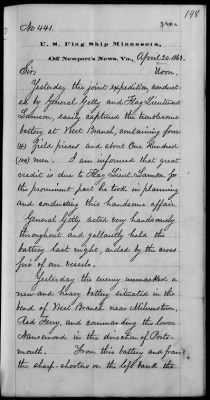 148
No 441.
U. S. Flag Ship Minnesota,
Off Newport's News, Va., April 20. 1863.
Sir; Noon.
Yesterday the joint expedition conduct-
ed by General Getty and Flag Lieutenant
Lamson, easily captured the troublesome
battery at West Branch, containing four
(4) field pieces. and about One Hundred
(100) men. I am informed that great
credit is due to Flag Lieut. Lamson for
the prominent part he took in planning
and conducting this handsome affair.
General Getty acted very handsomely
throughout and gallantly held the
battery last night, aided by the cross
fire of our vessels.
Yesterday the enemy unmasked a
new and heavy battery situated in the
bend of West Branch near
Red Ferry, and commanding the lower
Nansemond in the direction of Ports-
mouth. From this battery and from
the sharp-shooters on the left bank the